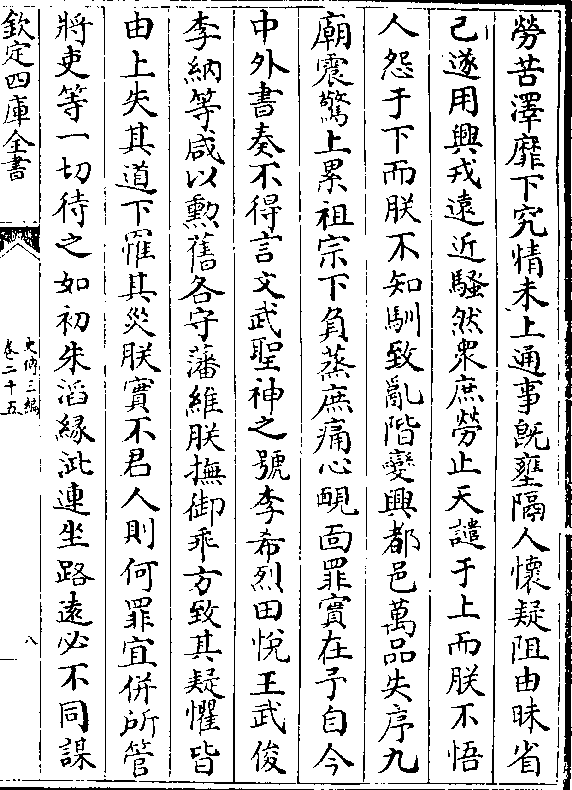 勞苦澤靡下究情未上通事旣壅隔人懷疑阻由昧省
己遂用興戎遠近騷然衆庶勞止天譴于上而朕不悟
人怨于下而朕不知馴致亂階變興都邑萬品失序九
廟震驚上累祖宗下負蒸庶痛心靦面罪實在予自今
中外書奏不得言文武聖神之號李希烈田悅王武俊
李納等咸以勲舊各守藩維朕撫御乖方致其疑懼皆
由上失其道下罹其災朕實不君人則何罪宜併所管
將吏等一切待之如初朱滔緣泚連坐路遠必不同謀
欽定四庫全書
史傳三編
卷二十五
八